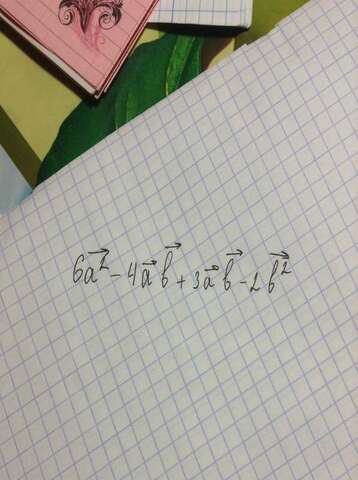 6a⃗² - 4a⃗ b⃗ + 3a⃗ b⃗ - 2b⃗²